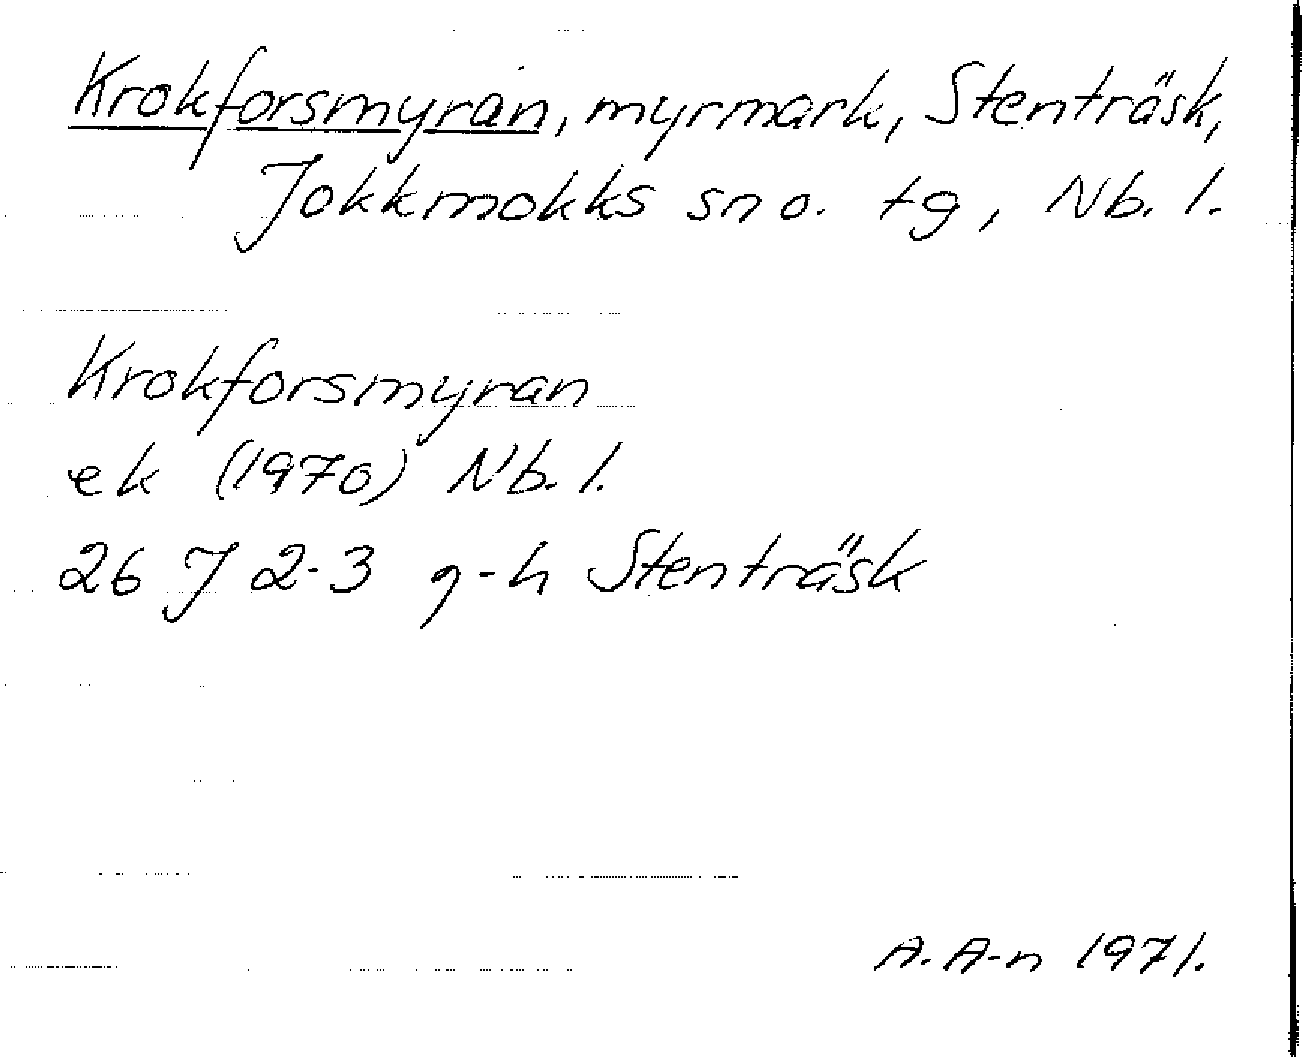 Krokforsmyran, myrmark, Stenträsk,
Jokkmokks sn o. tg, Nb. l.
Krokforsmyran
ek (1970) Nb. l.
26 J 2-3 g-h Stenträsk
A. A-n 1971.